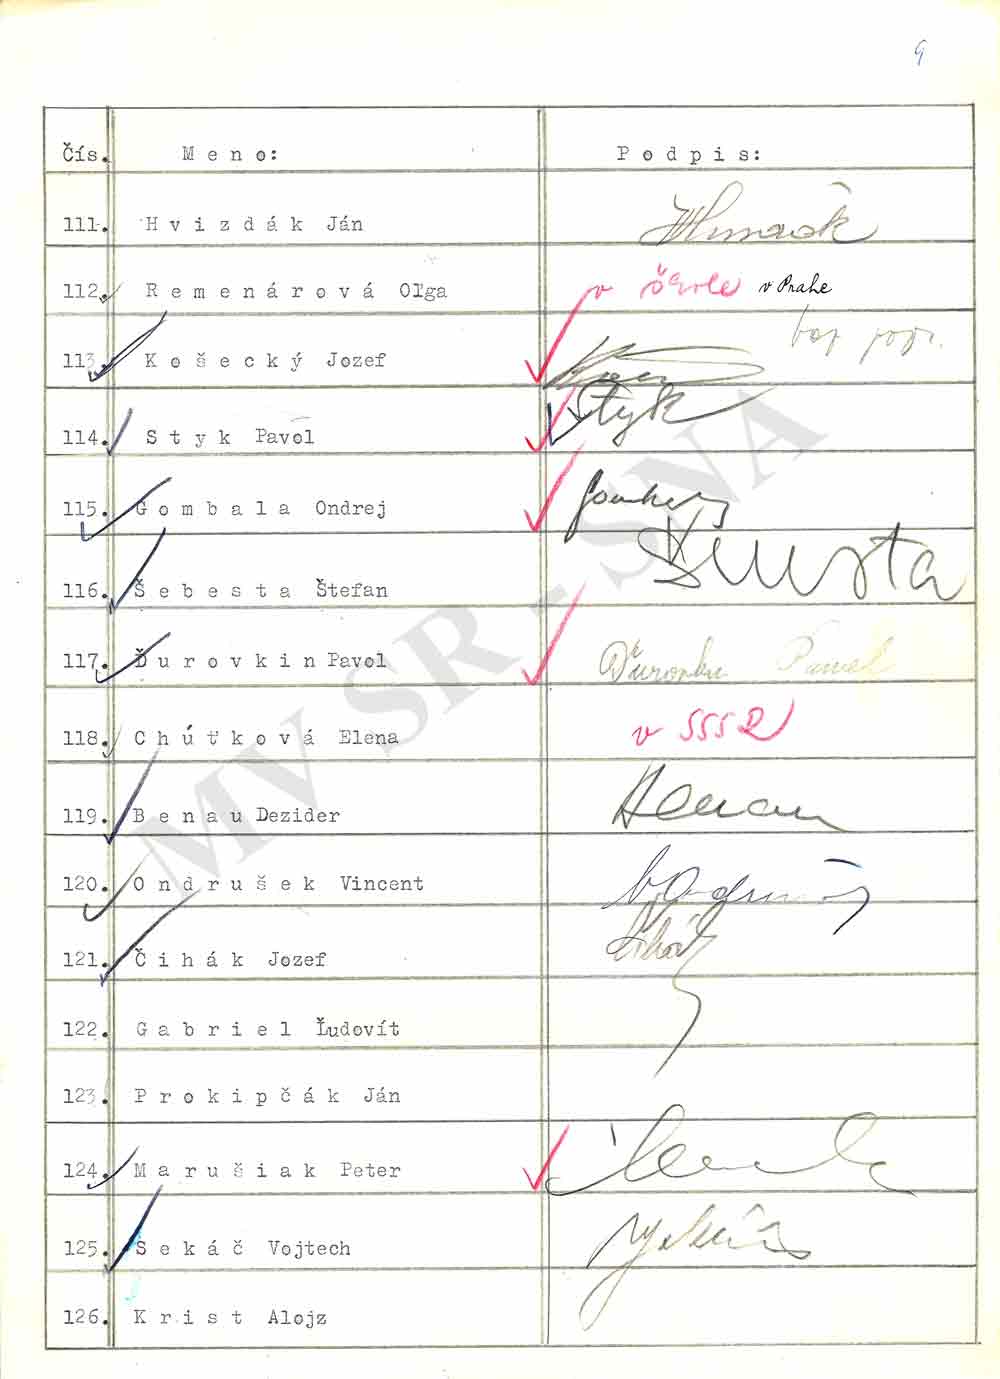 9
Čís. Meno: Podpis:
111. Hvizdák Ján
112. Remenárová Oľga v škole v Prahe
113. Košecký Jozef
114. Styk Pavol Styk
115. Gombala Ondrej
116. Šebesta Štefan
117. Ďurovkin Pavol
118. Chúťková Elena v SSSR
119. Benau Dezider
120. Ondrušek Vincent
121. Čihák Jozef Čihák
122. Gabriel Ľudovít
123. Prokipčák Ján
124. Marušiak Peter
125. Sekáč Vojtech
126. Krist Alojz
MV SR - SNA